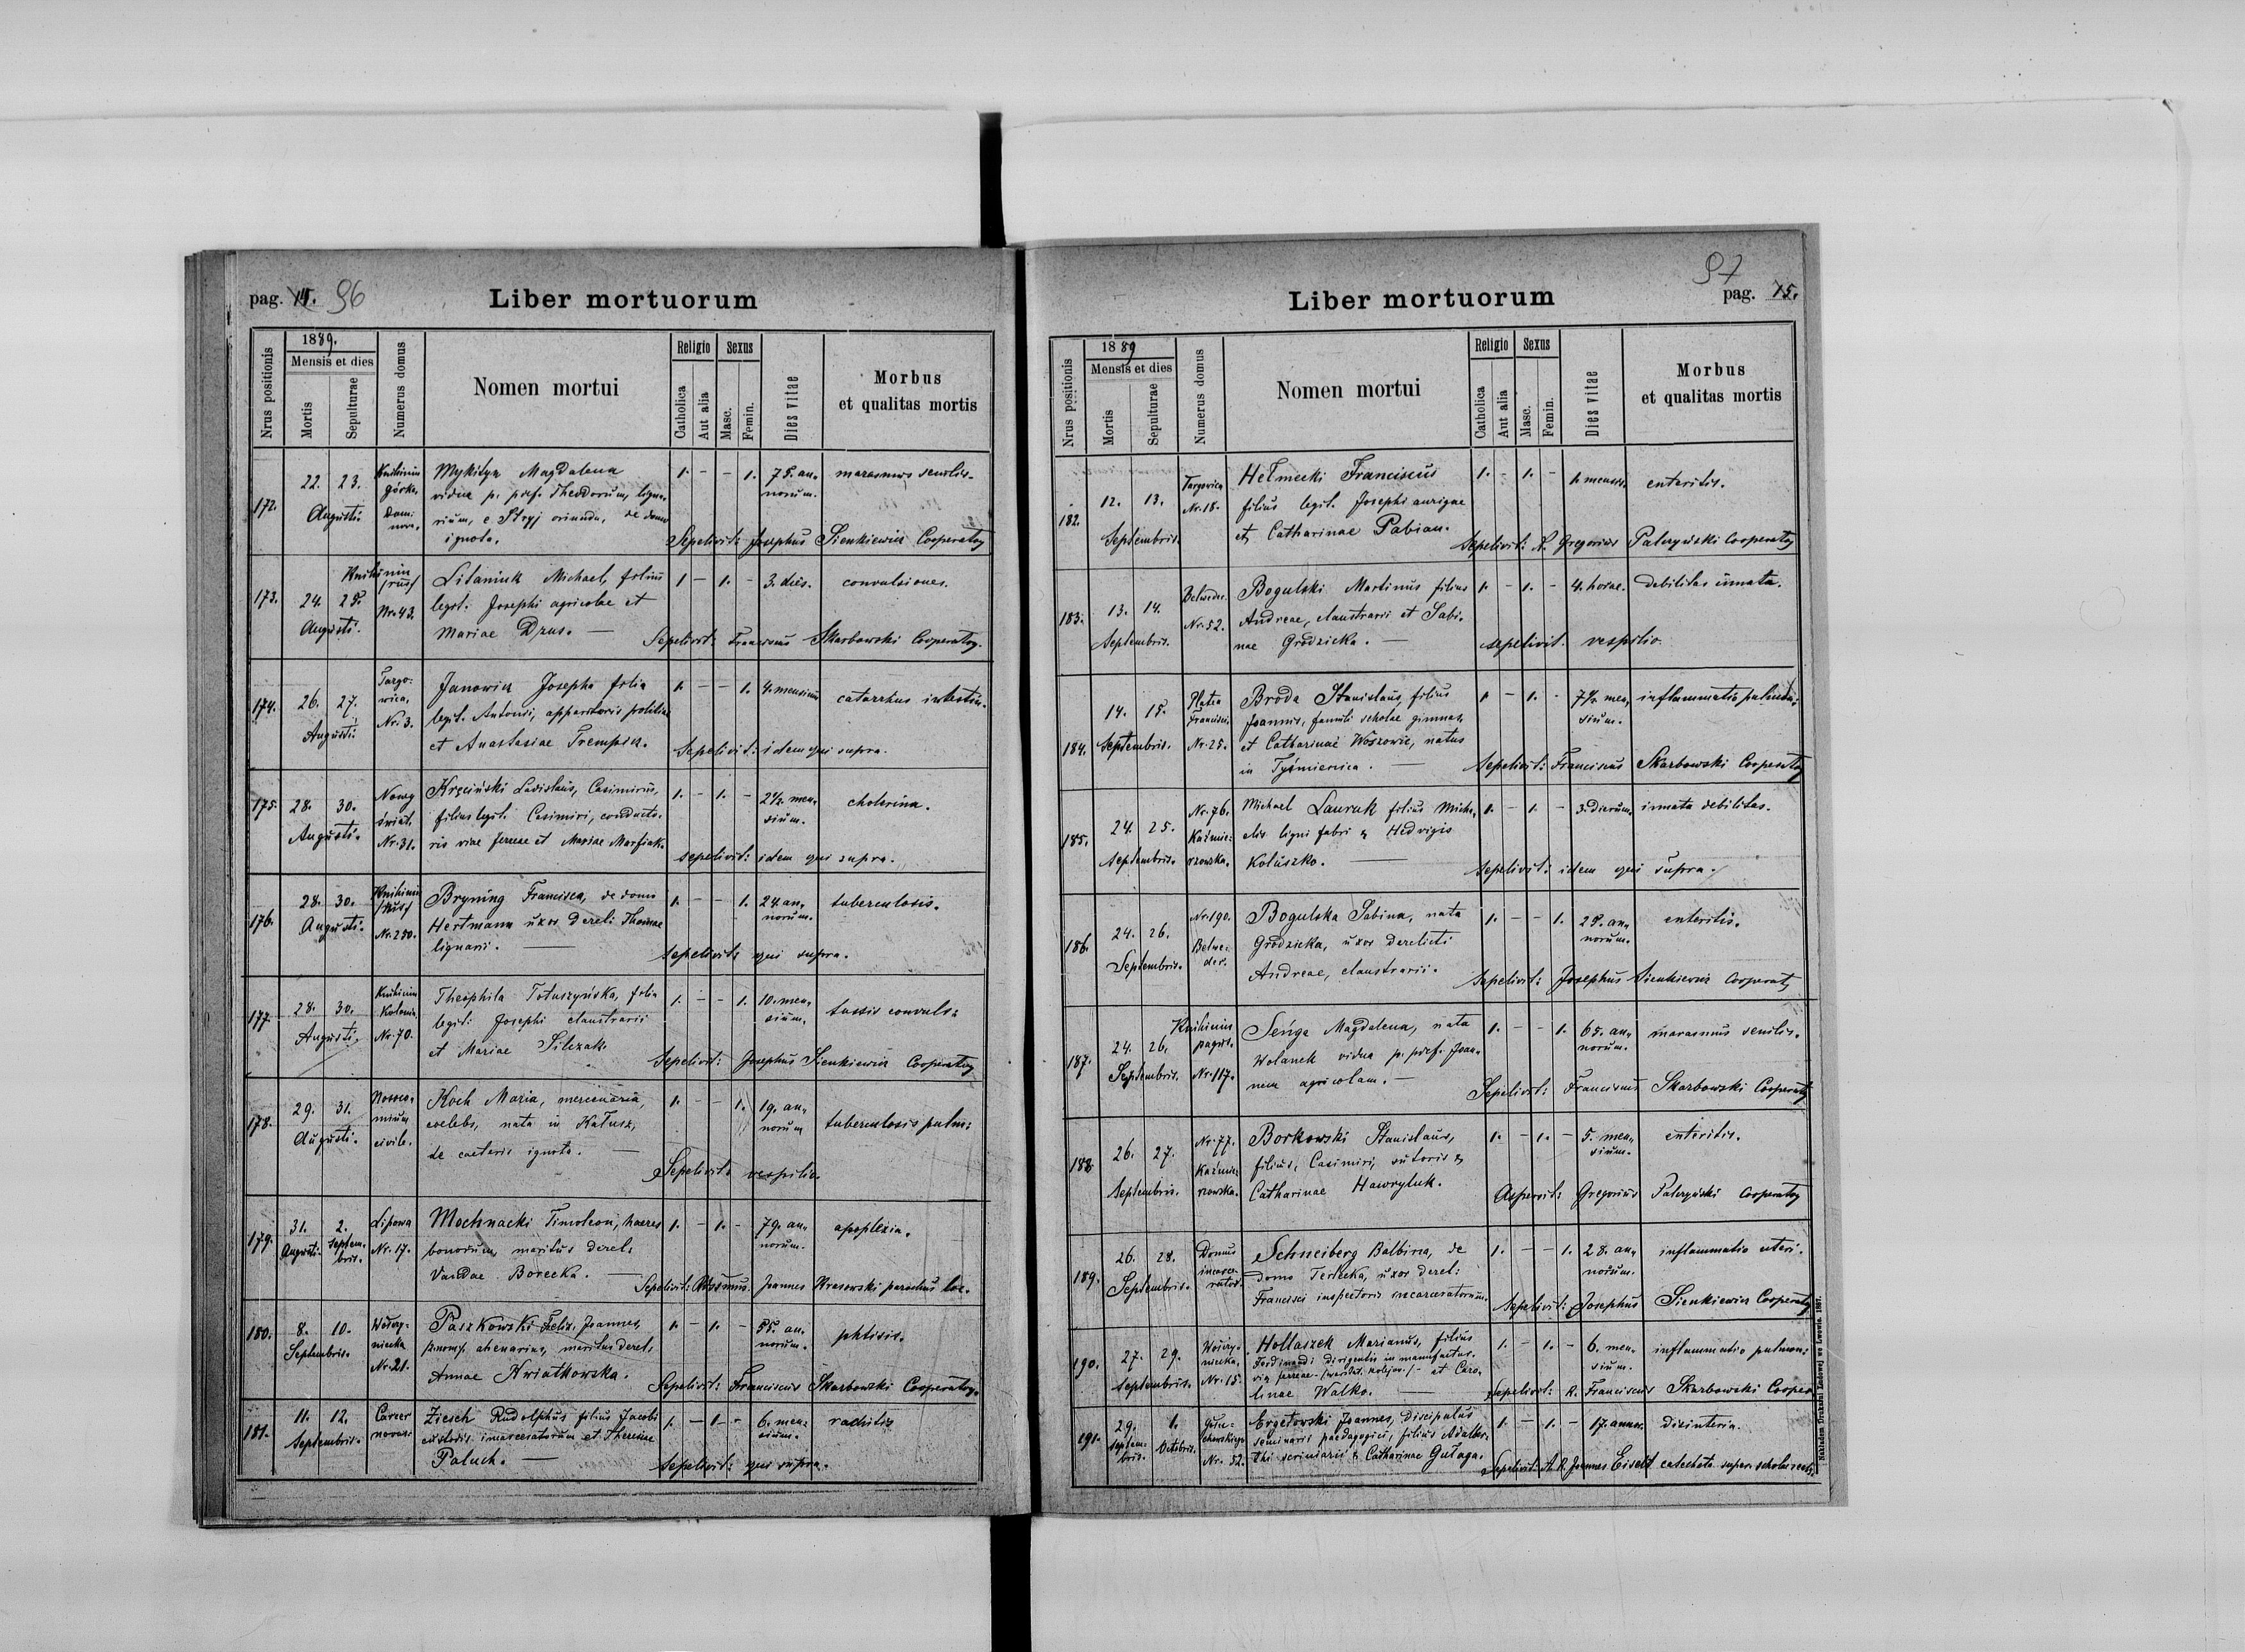 pag. 14. 96
Liber mortuorum
Nrus positionis
1889.
Mensis et dies
Mortis
Sepulturae
Numerus domus
Nomen mortui
Religio
Catholica
Aut alia
Sexus
Masc.
Femin.
Dies vitae
Morbus
et qualitas mortis
172. 22. 23. Augusti Knihinin górka, Domi nova,
Mykityn Magdalena
vidua p. def. Theodorum, ligna-
rium, e Stryj oriunda, de domo
ignota.
1. - - 1. 75. an-
norum. marasmus senilis.
Sepelivit: Josephus Sienkiewicz Cooperator
173. 24. 25. Augusti. Knihinin /rus/ Nr. 43.
Litaniuk Michael, filius
legit. Josephi agricolae et
Mariae Drus. —
1 - 1. - 3. dies. convulsiones.
Sepelivit: Franciscus Skarbowski Cooperator.
174. 26. 27. Augusti. Targo-
wica, Nr. 3.
Janowicz Josepha filia
legit. Antonii, apparitoris politiae
et Anastasiae Trempicz.
1. - - 1. 4. mensium catarrhus intestin.
Sepelivit: idem qui supra.
175. 28. 30. Augusti. Nowy świat. Nr. 31.
Kręciński Ladislaus, Casimirus,
filius legit. Casimiri, conducto-
ris viae ferreae et Mariae Marfiak.
1. - 1. - 2½ men-
sium. cholerina.
sepelivit: idem qui supra.
176. 28. 30. Augusti. Knihinin /rus/ Nr. 250.
Bryning Francisca, de domo
Hertmann uxor derel. Thomae
lignarii. —
1. - - 1. 24. an-
norum. tuberculosis.
sepelivit: qui supra.
177. 28. 30. Augusti. Knihinin Kolonia. Nr. 70.
Theophila Totuszyńska, filia
legit: Josephi claustrarii
et Mariae Silczak.
1. - - 1. 10. men-
sium. tussis convuls:
Sepelivit: Josephus Sienkiewicz Cooperator
178. 29. 31. Augusti. Nosoco-
mium civile.
Koch Maria, mercenaria,
coelebs, nata in Kałusz,
de caeteris ignota. —
1. - - 1. 19. an-
norum tuberculosis pulm:
Sepelivit: vespilio.
179. 31. Augusti. 2. Septem-
bris. Lipowa Nr. 17.
Mochnacki Timoleon, haeres
bonorum, maritus derel.
Vandae Borecka. —
1. - 1. - 79. an-
norum. apoplexia.
Sepelivit: Joannes Krasowski parochus loc.
180. 8. 10. Septembris. Nr. 21.
Paszkowski Felix, Joannes,
maritus derel.
Annae Kwiatkowska.
1. - 1. - 55. an-
norum. phtisis.
Sepelivit: Franciscus Skarbowski Cooperator.
181. 11. 12. Septembris. Carcer novus.
Ziesch Rudolphus filius Jacobi
custodis incarceratorum et Theresiae
Paluch. —
1. - 1 - 6. men-
sium. rachitis
Sepelivit: qui supra.
97
pag. 15.
Liber mortuorum
Nrus positionis
1889
Mensis et dies
Mortis
Sepulturae
Numerus domus
Nomen mortui
Religio
Catholica
Aut alia
Sexus
Masc.
Femin.
Dies vitae
Morbus
et qualitas mortis
182. 12. 13. Septembris. Targowica Nr. 18.
Hełmecki Franciscus
filius legit. Josephi aurigae
et Catharinae Pabian.
1. - 1. - 1. mensis. enteritis.
Sepelivit: R. Gregorius Cooperator
183. 13. 14. Septembris. Belweder. Nr. 52.
Bogulski Martinus filius
Andreae, claustrarii et Sabi-
nae Grodzicka. —
1. - 1. - 4. horae. debilitas innata.
sepelivit. vespilio.
184. 14. 15. Septembris. Platea Francisci Nr. 25.
Broda Stanislaus, filius
Joannis, famuli scholae gimnas.
et Catharinae Woszowic, natus
in Tyśmienica. —
1 - 1. - 7½ men-
sium. inflammatio
Sepelivit: Franciscus Skarbowski Cooperator
185. 24. 25. Septembris. Nr. 76. Kazimie-
rzowska.
Michael Lauruk filius Micha-
elis ligni fabri & Hedvigis
Koluszko. —
1. - 1. - 3. dierum. innata debilitas.
Sepelivit: idem qui supra.
186. 24. 26. Septembris. Nr. 190. Belwe-
der.
Bogulska Sabina, nata
Grodzicka, uxor derelicti
Andreae, claustrarii.
1. - - 1. 25. an-
norum. enteritis.
Sepelivit: Josephus Sienkiewicz Cooperator
187. 24. 26. Septembris. Knihinin pagus. Nr. 117.
Senga Magdalena, nata
Wolanek vidua p. def. Joan-
nem agricolam. —
1. - - 1. 65. an-
norum. marasmus senilis.
Sepelivit: Franciscus Skarbowski Cooperator
188. 26. 27. Septembris. Nr. 77. Kazimie-
rzowska.
Borkowski Stanislaus,
filius, Casimiri, sutoris &
Catharinae Hawryluk.
1. - 1. - 5. men-
sium. enteritis.
Gregorius Cooperator
189. 26. 28. Septembris. Domus incarce-
rator.
Schneiberg Balbina, de
domo Terlecka, uxor derel:
Francisci inspectoris incarceratorum.
1. - - 1. 28. an-
norum. inflammatio uteri.
Sepelivit: Josephus Sienkiewicz Cooperator
190. 27. 29. Septembris. Nr. 15.
Hollaszek Marianus, filius
Ferdinandi dirigentis in manufactur.
viae ferreae et Caro-
linae Walko. —
1. - 1. - 6. men-
sium. inflammatio pulmon:
Sepelivit: R. Franciscus Skarbowski Cooper
191. 29. Septem-
bris. 1. Octobris. Nr. 52.
Ergetowski Joannes, discipulus
seminarii paedagogici, filius Adalber-
thi scriniarii & Catharinae Gułaga.
1. - 1. - 17. annor. dizinteria.
Sepelivit: A. R. Joannes Eiselt catecheta super. scholae real.
Nakładem Drukarni Ludowej we Lwowie. 1887.